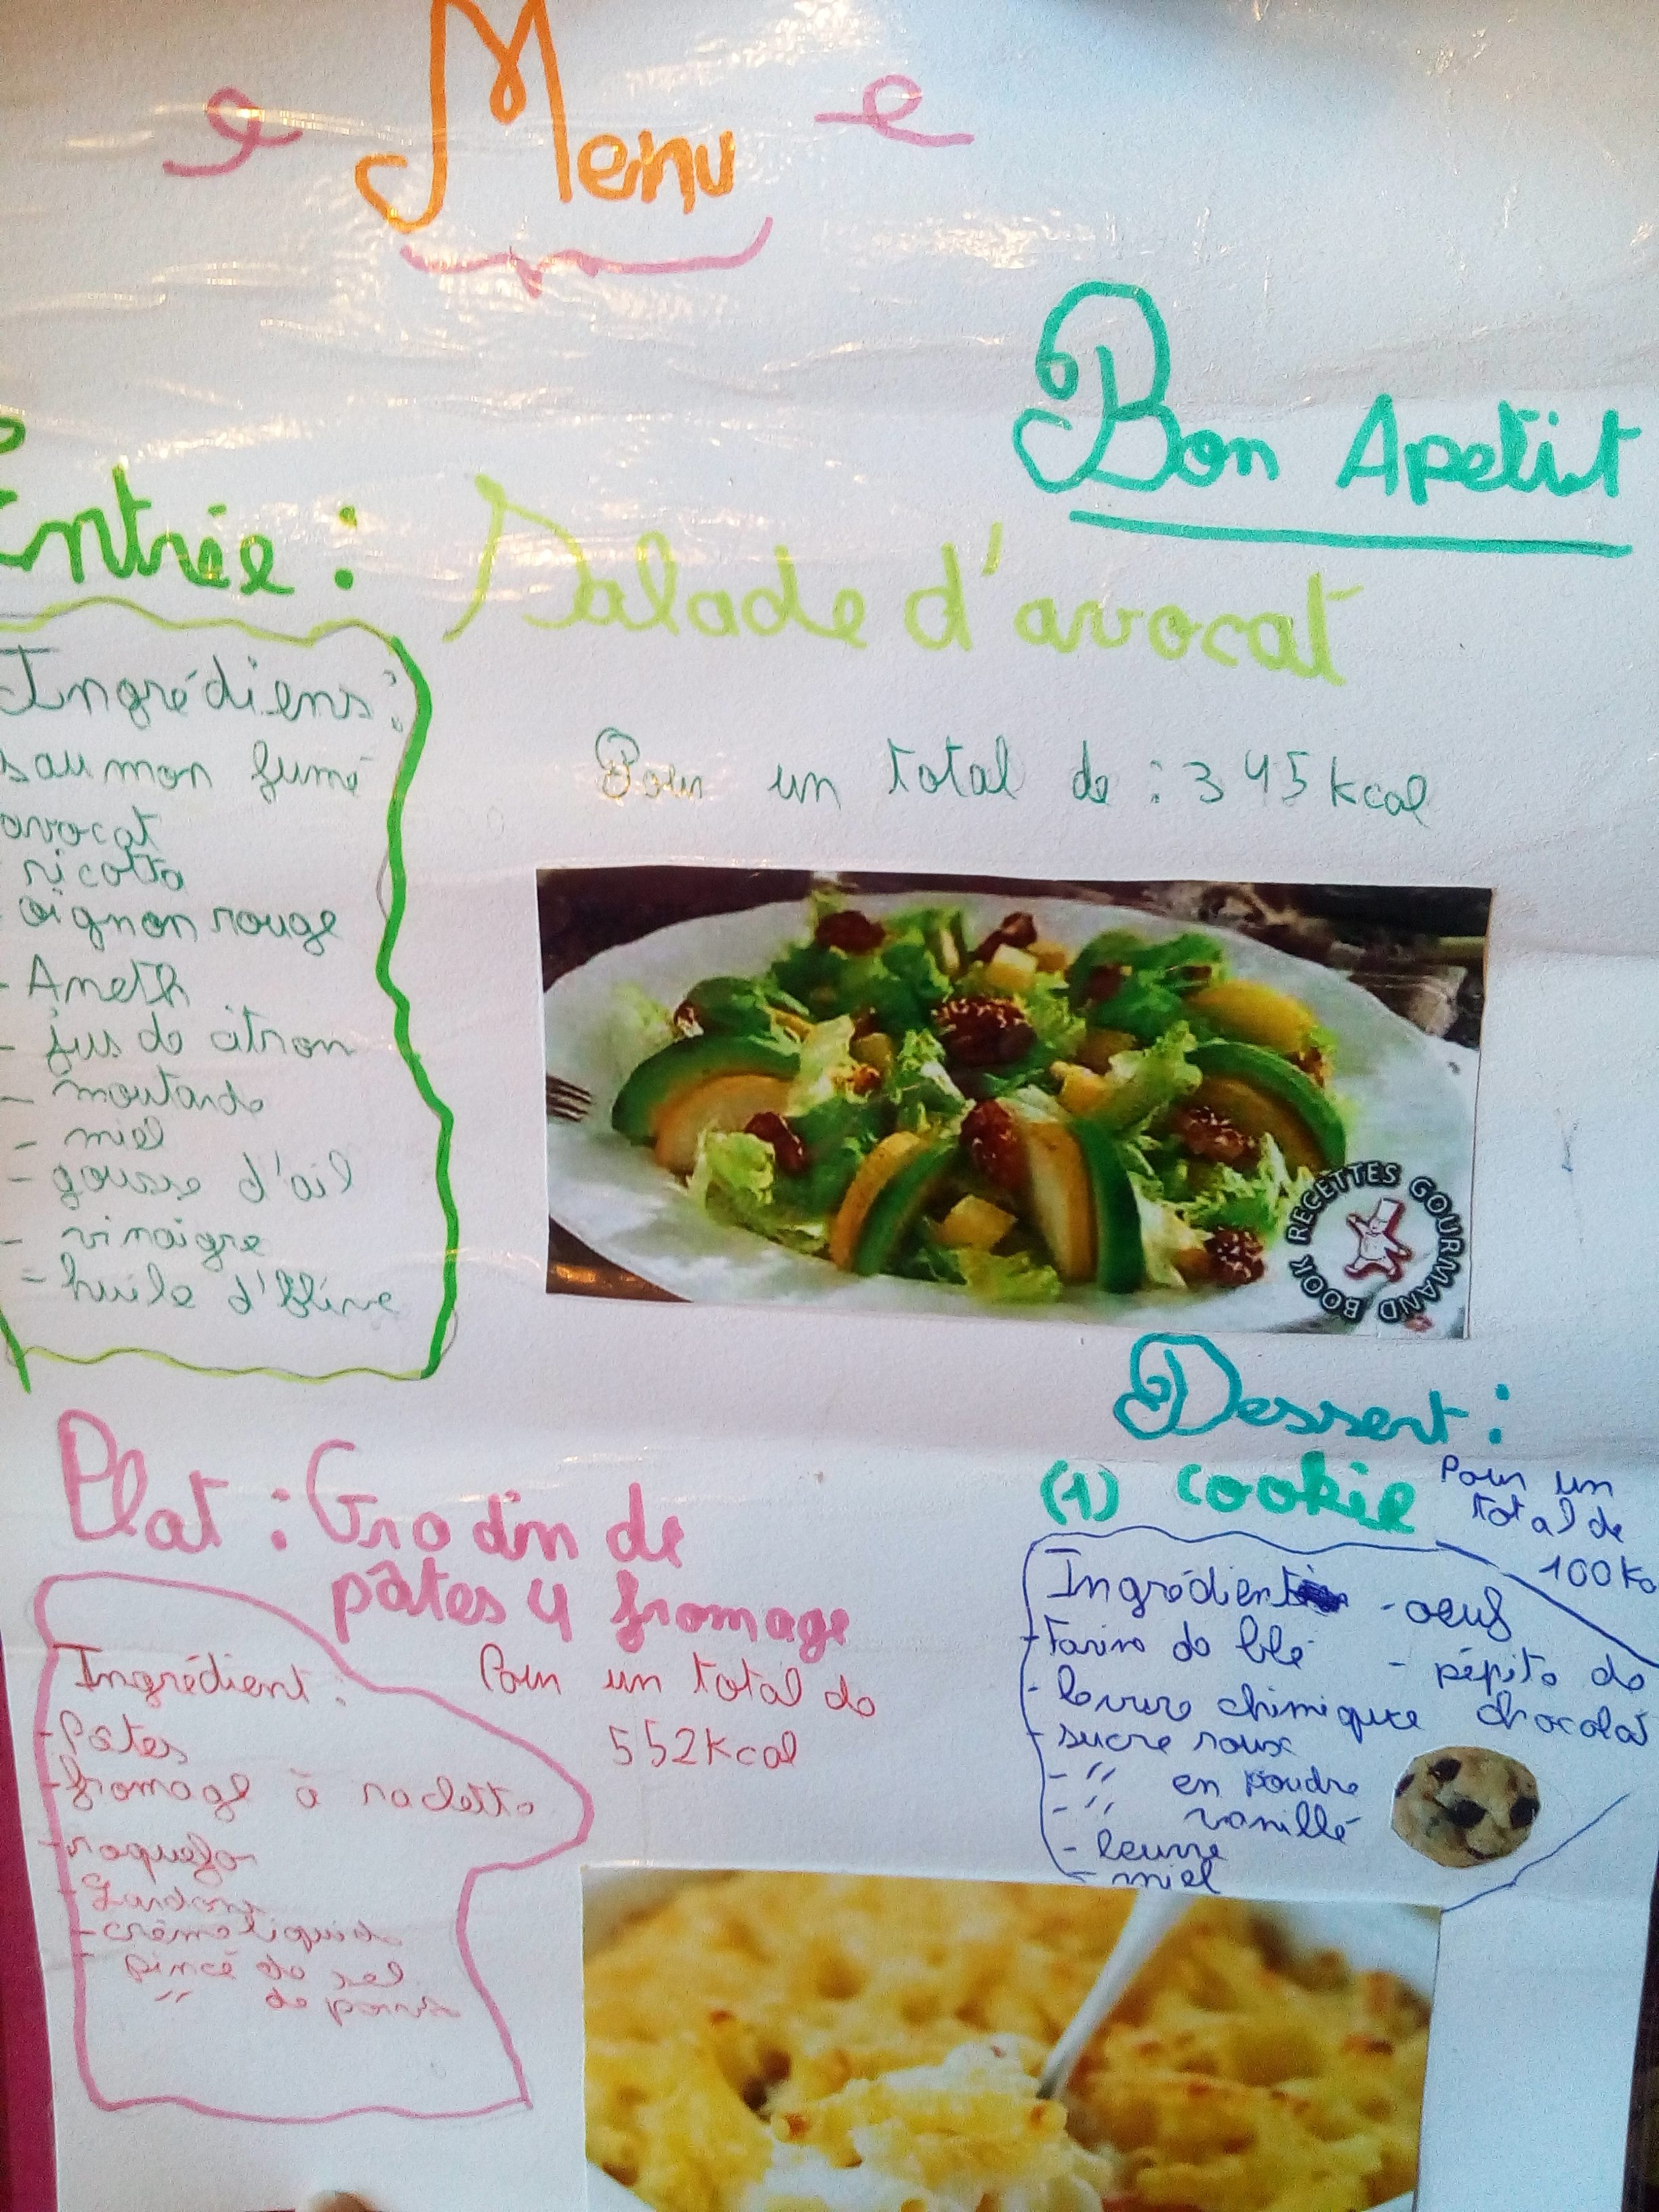 Menu
Bon Apetit
Entrée : Salade d'avocat
Ingrédiens :
saumon fumé
avocat
ricotta
oignon rouge
- Aneth
- jus de citron
- moutarde
- miel
- gousse d'ail
- vinaigre
- huile d'olive
Pour un total de : 345 kcal
BOOK RECETTES GOURMAND
Plat : Gratin de
pâtes 4 fromage
Ingrédient :
- Pâtes
- fromage à raclette
- roquefor
- Lardons
- crème liquide
- pincé de sel
- " de poivre
Pour un total de
552 kcal
Dessert :
(1) cookie
Pour un
total de
100 Kc
Ingrédient
- Farine de blé
- levure chimique
- sucre roux
- " en poudre
- " vanillé
- beurre
- miel
- oeuf
- pépite de
chocolat